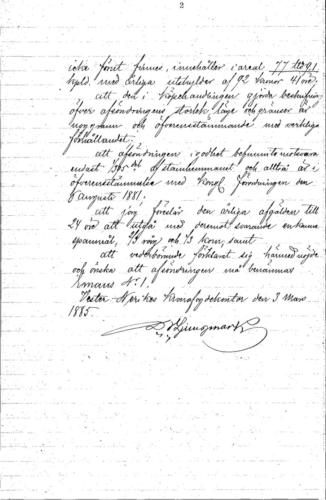 2
icke förut finnes, innehåller i areal 77
hpld. med årliga utskylder af 92 kannor 41 öre;
att den i köpehandlingen gjorda beskrifning
öfver afsöndringens storlek, läge och gränser är
noggrann och öfverensstämmande med verkliga
förhållandet;
att afsöndringen i godhet befunnits motsvara
endast af stamhemmanet och alltså är i
öfverensstämmelse med Kongl Förordningen den
6 augusti 1881;
att jag föreslår den årliga afgälden till
24 öre att utgå med deremot svarande en kanna
spannmål, 2/3 råg och 1/3 korn, samt
att vederbörande förklarat sig härmed nöjde
och önska att afsöndringen må benämnas
No 1.
Vester Nerikes Kronofogdekontor den 3 Mars
1885.
Ljungmark